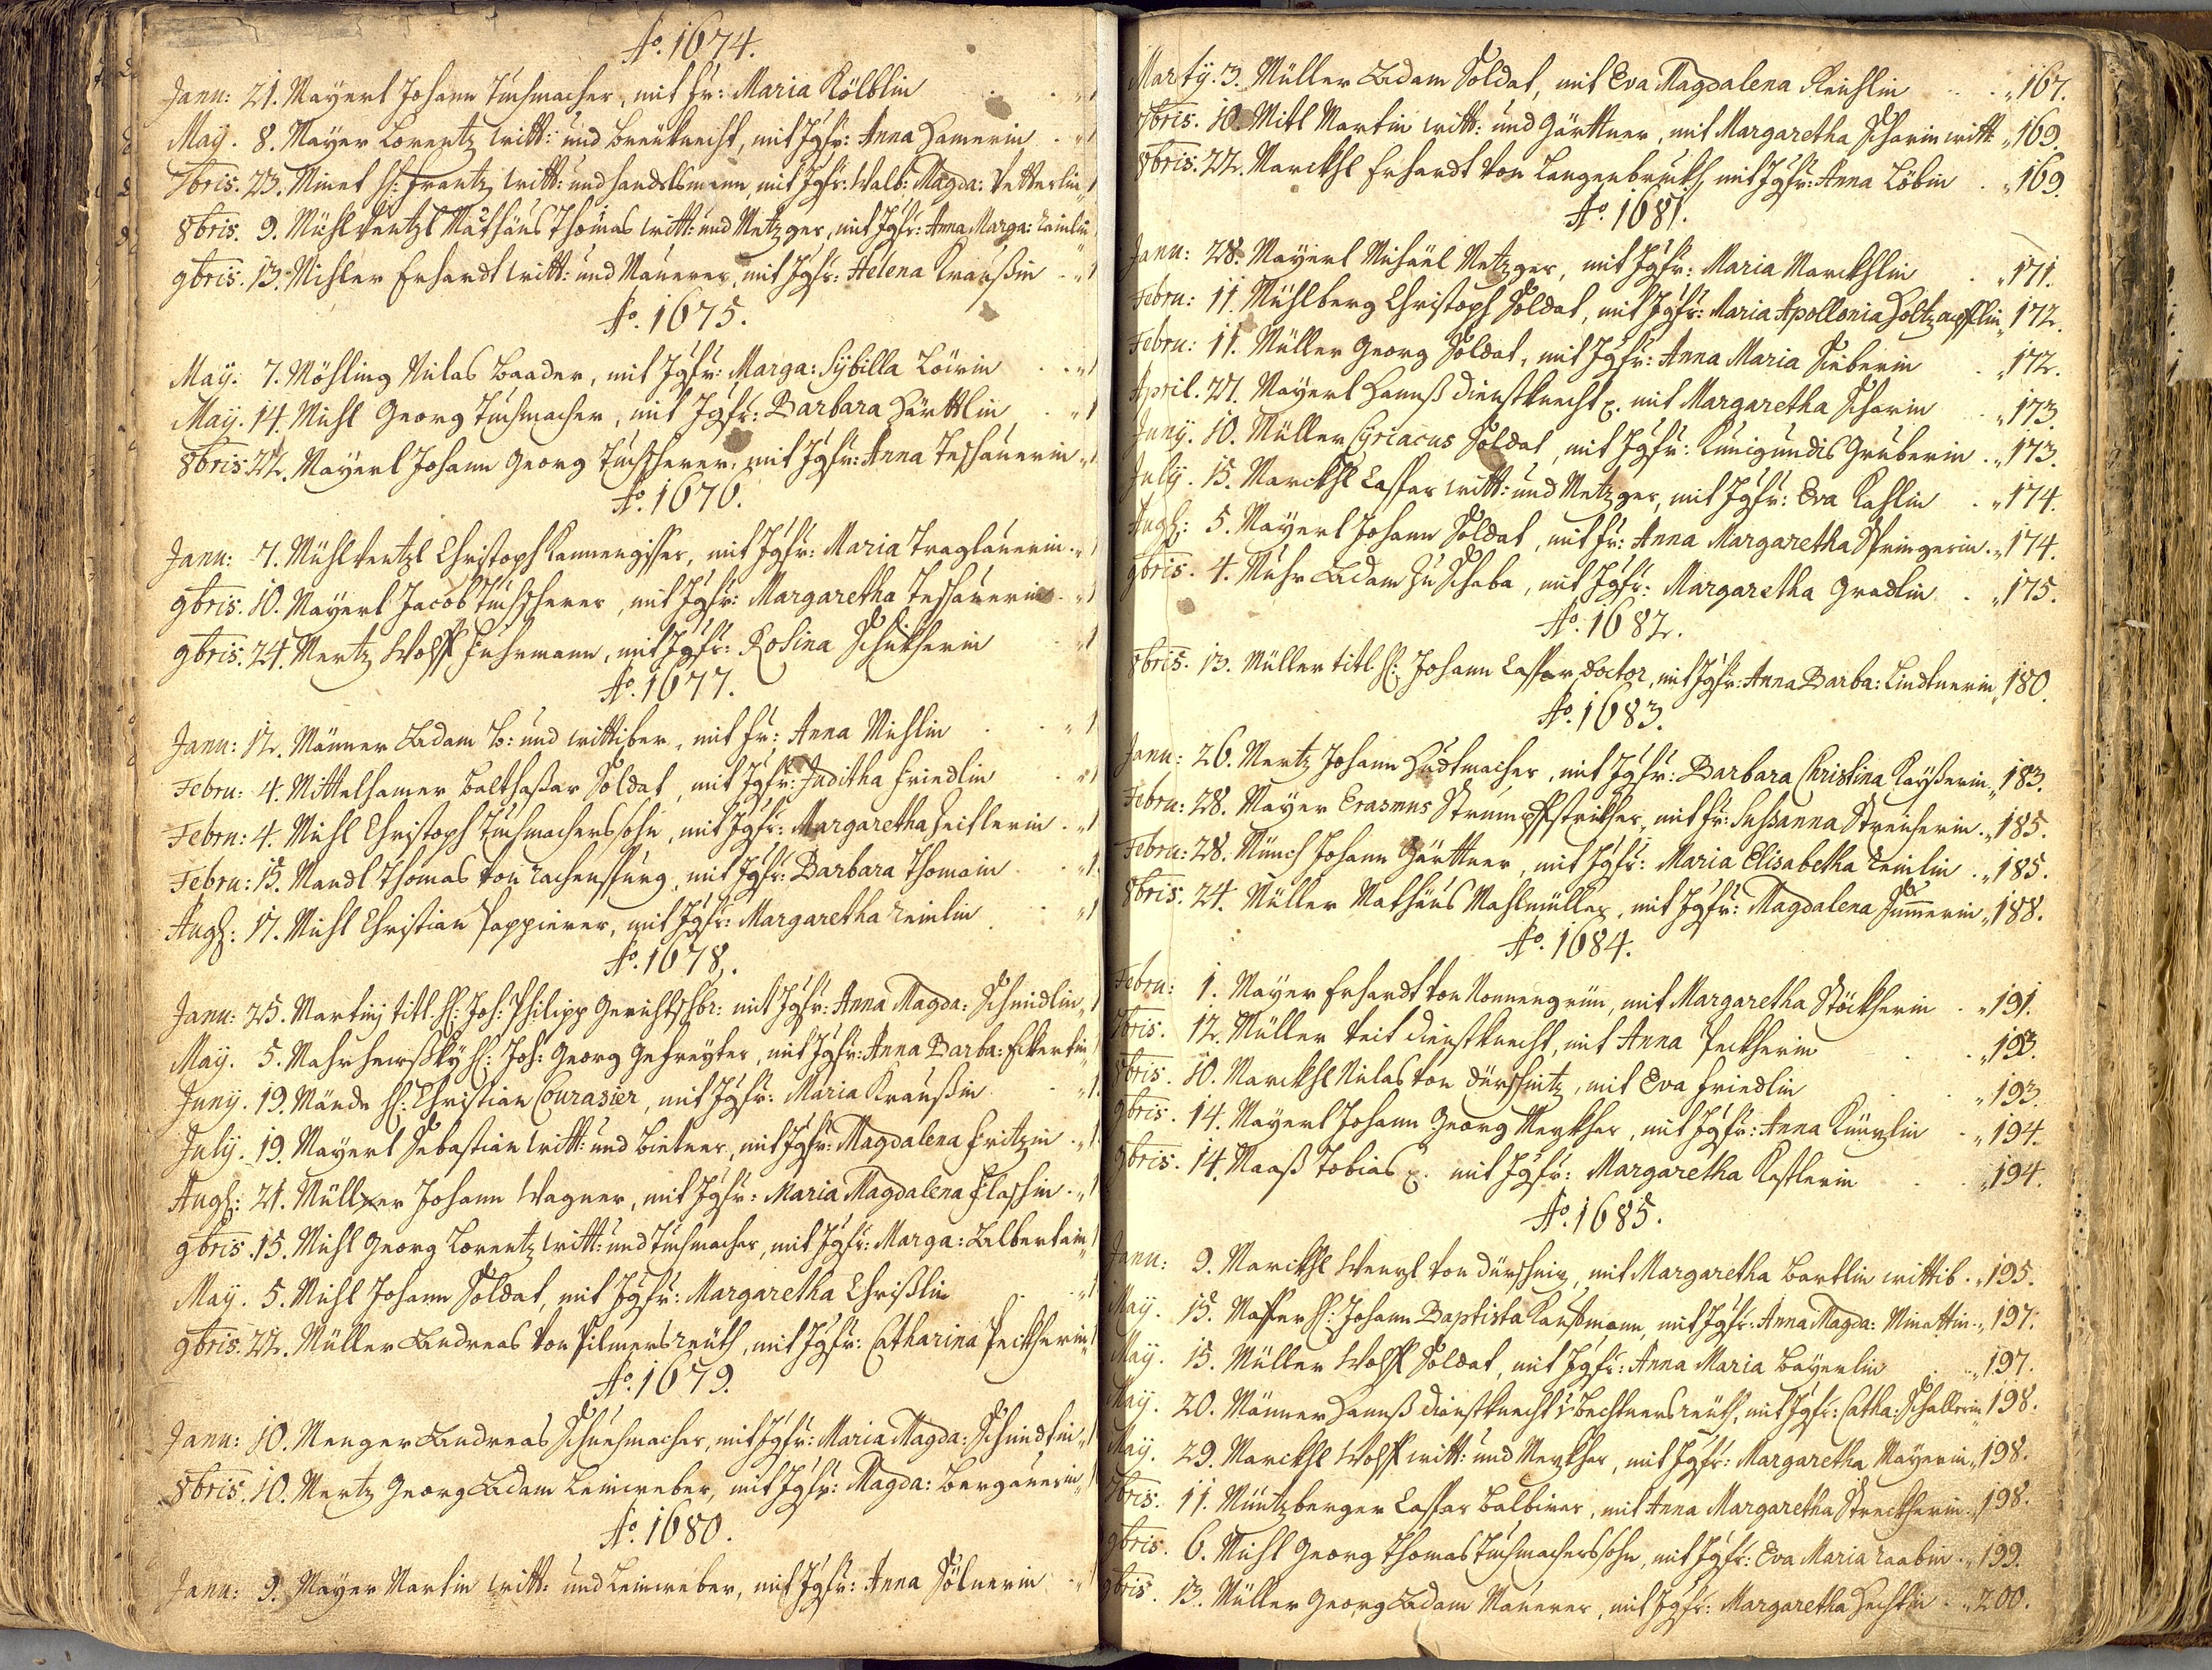 Aõ. 1674.
Janu: 21. Mayerl Johann Tuchmacher, mit Fr: Maria Kölblin
May. 8. Mayer Lorentz witt: und Breüknecht, mit Jgfr: Anna Hamerin
7bris. 23. Minet H: Frantz witt: und Handelsmann, mit Jgfr: Walb: Magda: Vetterlin
8bris. 9. Mühlventzl Mathäus Thomas witt: und Metzger, mit Jgfr: Anna Marga:
9bris. 13. Michler Erhardt witt: und Maurer, mit Jgfr: Helena Kraußin
Aõ. 1675.
May. 7. Möhling Niclas Baader, mit Jgfr: Marga: Sybilla
May. 14. Michl Georg Tuchmacher, mit Jgfr: Barbara Härttlin
8bris. 22. Mayerl Johann Georg Tuchscherer, mit Jgfr: Anna Teschauerin
Aõ. 1676.
Janu: 7. Mühlventzl Christoph Kannengisser, mit Jgfr: Maria Traglauerin
9bris. 10. Mayerl Jacob Tuchscherer, mit Jgfr: Margaretha Teschauerin
9bris. 24. Mertz Wolff Fuhrmann, mit Jgfr: Rosina Schickherin
Aõ. 1677.
Janu: 12. Männer Adam B: und wittiber, mit Fr: Anna Michlin
Febru: 4. Mittelhamer Balthaßar Soldat, mit Jgfr: Juditha Friedlin
Febru: 4. Michl Christoph Tuchmacherssohn, mit Jgfr: Margaretha Zeitlerin
Febru: 15. Mandl Thomas von, mit Jgfr: Barbara Thomain
Aug: 17. Michl Christian Pappierer, mit Jgfr: Margaretha
Aõ. 1678.
Janu: 25. Martinj titl. H: Joh: Philipp Gerichtschbr: mit Jgfr: Anna Magda: Schmidlin
May. 5. H: Joh: Georg Gefreyter, mit Jgfr: Anna Barba: Eckertin
Juny. 19. Mände H: Christian Courasier, mit Jgfr: Maria Kraußin
July. 19. Mayerl Sebastian witt: und, mit Jgfr: Magdalena Fritzin
Aug: 21. Müllner Johann Wagner, mit Jgfr: Maria Magdalena Flaschin
9bris. 15. Michl Georg Lorentz witt: und Tuchmacher, mit Jgfr: Marga: Albertain
May. 5. Michl Johann Soldat, mit Jgfr: Margaretha Chrißlin
9bris. 22. Müller Andreas von Pilmersreuth, mit Jgfr: Catharina Peckherin
Aõ. 1679.
Janu: 10. Menger Andreas Schuehmacher, mit Jgfr: Maria Magda: Schmidtin
8bris. 10. Mertz Georg Adam Leinweber, mit Jgfr: Magda: Bergauerin
Aõ. 1680.
Janu: 9. Mayer Martin witt: und Leinweber, mit Jgfr: Anna Sölnerin
Marty. 3. Müller Adam Soldat, mit Eva Magdalena Reichlin 167.
7bris. 10. Mitl Martin witt: und Gärttner, mit Margaretha Scharin witt: 169.
8bris. 22. Marckhl Erhardt von Langenbruckh, mit Jgfr: Anna Löbin 169
Aõ. 1681.
Janu: 28. Mayerl Michael Metzger, mit Jgfr: Maria Marckhlin 171.
Febru: 11. Mühlberg Christoph Soldat, mit Jgfr: Maria Apollonia Holtzapfflin 172.
Febru: 11. Müller Georg Soldat, mit Jgfr: Anna Maria Sieberin 172.
April. 27. Mayerl Hannß Dienstknecht. mit Margaretha Scharin 173.
Juny. 10. Müller Cyriacus Soldat, mit Jgfr: Kunigundis Gruberin 173.
July. 15. Marckhl Caspar witt: und Metzger, mit Jgfr: Eva Kahlin 174.
Aug: 5. Mayerl Johann Soldat, mit Fr: Anna Margaretha Springerin 174.
9bris. 4. Muhr Adam zu Schaba, mit Jgfr: Margaretha Gradlin 175.
Aõ. 1682.
8bris. 13. Müller titl. H: Johann Caspar Doctor, mit Jgfr: Anna Barba: Lindtnerin 180.
Aõ. 1683.
Janu: 26. Mertz Johann Huedtmacher, mit Jgfr: Barbara Christina Kayßerin 183.
Febru: 28. Mayer Erasmus Strumpffstrickher, mit Fr: Sußanna Streicherin 185.
Febru: 28. Münch Johann Gärttner, mit Jgfr: Maria Elisabetha 185.
8bris. 24. Müller Mathäus Mahlmüller, mit Jgfr: Magdalena Sum̄erin 188.
Aõ. 1684.
Febru: 1. Mayer Erhardt von Nonnengrün, mit Margaretha Stöckherin 191.
7bris. 12. Müller Veit Dienstknecht, mit Anna Peckherin 193.
8bris. 10. Marckhl Niclas von Dürschnitz, mit Eva Friedlin 193.
9bris. 14. Mayerl Johann Georg, mit Jgfr: Anna Künzlin 194.
9bris. 14. Maaß Tobias. mit Jgfr: Margaretha Kastlerin 194.
Aõ. 1685.
Janu: 9. Marckhl Wenzl von Dürschniz, mit Margaretha Bartlin wittib 195.
May. 15. H: Johann Baptista Kauffmann, mit Jgfr: Anna Magda: Minattin 197.
May. 15. Müller Wolff Soldat, mit Jgfr: Anna Maria Bayerlin 197.
May. 20. Männer Hannß Dienstknecht, mit Jgfr: Catha: Schallerin 198.
May. 29. Marckhl Wolff witt: und, mit Jgfr: Margaretha Mayerin 198.
7bris. 11. Müntzberger Caspar Balbirer, mit Anna Margaretha Streckherin 198.
9bris. 6. Michl Georg Thomas Tuchmacherssohn, mit Jgfr: Eva Maria Raabin 199.
9bris. 13. Müller Georg Adam Maurer, mit Jgfr: Margaretha Hechtin 200.